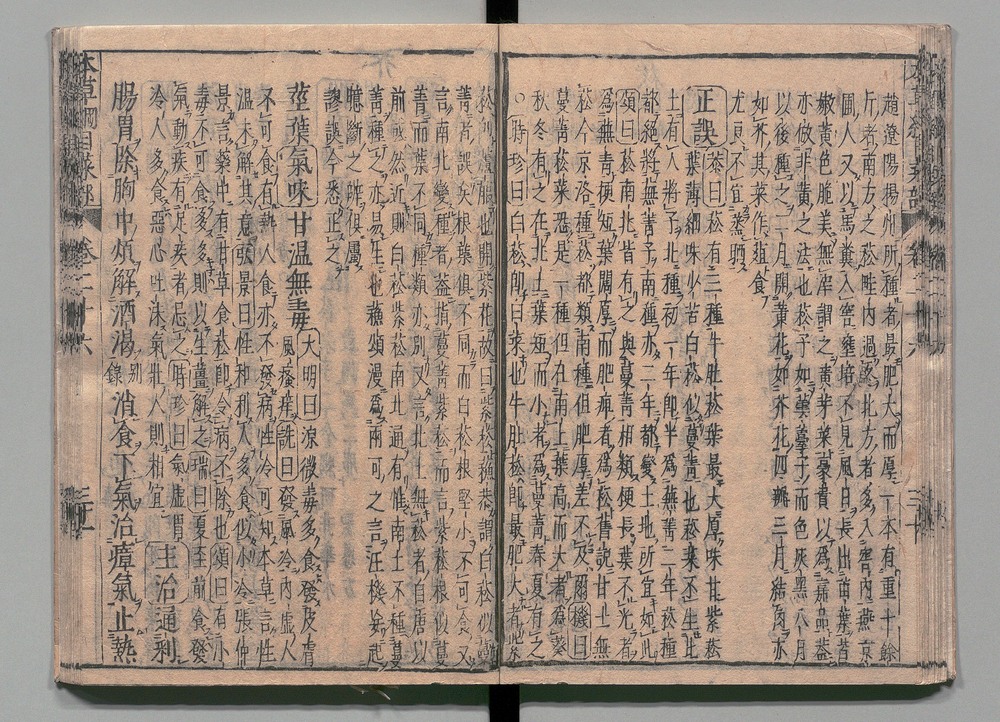 趙遼陽揚州所種者最肥大而厚一本有重十餘
斤者南方之菘畦內過冬北方者多入窖內燕京
圃人又以馬糞入窖壅培不見風日長出苗葉皆
嫩黃色脆美無滓謂之黃芽菜豪貴以為嘉品蓋
亦倣韭黃之法也菘子如蕓薹子而色灰黑八月
以後種之二月開黃花如芥花四瓣三月結角亦
如芥其菜作葅食
尤良不宜蒸晒
正誤 恭曰菘有三種牛肚菘葉最大厚味甘紫菘
葉薄細味少苦白菘似蔓菁也菘菜不生北
土有人將子北種初一年即半為蕪菁二年菘種
都絕將蕪菁子南種亦二年都變土地所宜如此
頌曰菘南北皆有之與蔓菁相類梗長葉不光者
為蕪菁梗短葉闊厚而肥痺者為菘舊說北土無
菘今京洛種菘都類南種但肥厚差不及爾機曰
蔓菁菘菜恐是一種但在南土葉高而大者為菘
秋冬有之在北土葉短而小者為蔓菁春夏有之
○時珍曰白菘即白菜也牛肚菘即最肥大者紫
菘即蘆菔也開紫花故曰紫菘蘇恭謂白菘似蔓
菁者誤矣根葉俱不同而白菘根堅小不可食又
言南北變種者蓋指蔓菁紫菘而言紫菘根似蔓
菁而葉不同種類亦別又言北土無菘者自唐以
前或然近則白菘紫菘南北通有惟南土不種蔓
菁種之亦易生也蘇頌漫為兩可之言汪機妄起
臆斷之辨俱屬
謬誤今悉正之
莖葉氣味甘溫無毒 大明曰涼微毒多食發皮膚
風瘙痒詵曰發風冷內虛人
不可食有熱人食亦不發病性冷可知本草言性
溫未解其意弘景曰性和利人多食似小冷張仲
景言藥中有甘草食菘即令病不除也頌曰有小
毒不可食多多則以生薑解之瑞曰夏至前食發
氣動疾有足疾者忌之時珍曰氣虛胃
冷人多食惡心吐沫氣壯人則相宜 主治通利
腸胃除胸中煩解酒渴 別錄 消食下氣治瘴氣止熱
本草綱目菜部
卷二十六
二十一